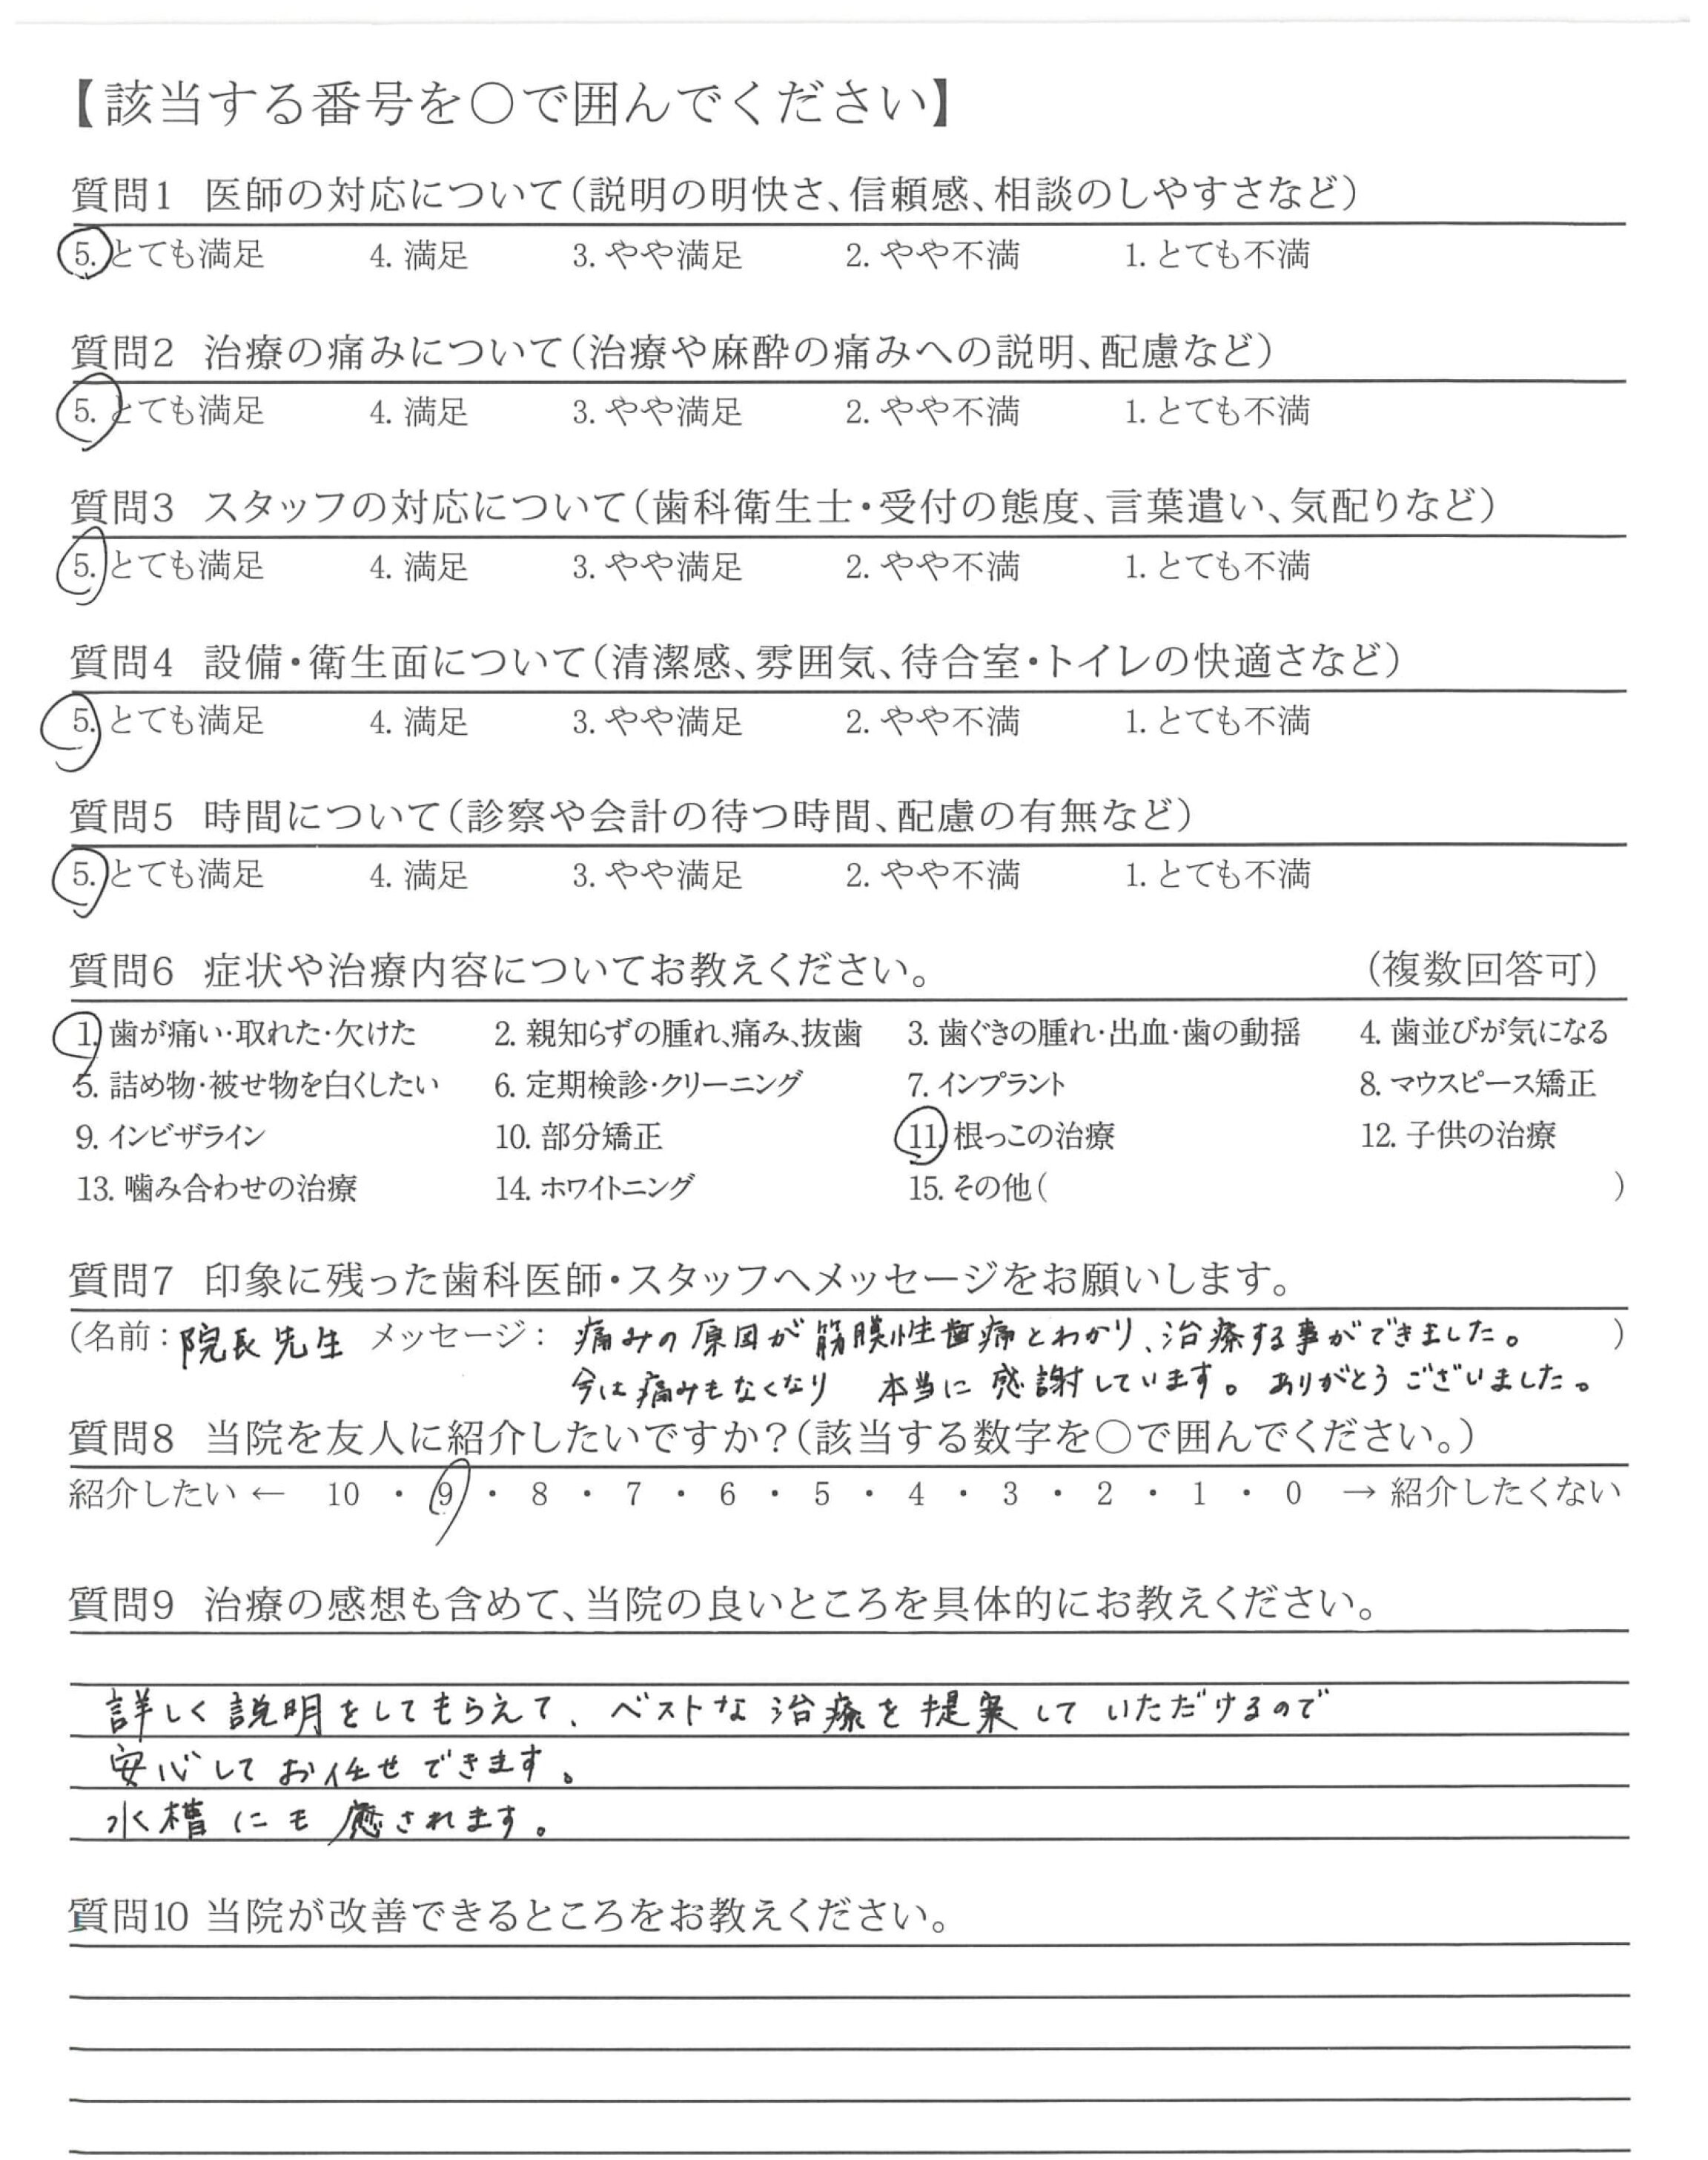 【該当する番号を〇で囲んでください】
質問1 医師の対応について(説明の明快さ、信頼感、相談のしやすさなど)
5. とても満足 4. 満足 3. やや満足 2. やや不満 1. とても不満
質問2 治療の痛みについて(治療や麻酔の痛みへの説明、配慮など)
5. とても満足 4. 満足 3. やや満足 2. やや不満 1. とても不満
質問3 スタッフの対応について(歯科衛生士・受付の態度、言葉遣い、気配りなど)
5. とても満足 4. 満足 3. やや満足 2. やや不満 1. とても不満
質問4 設備・衛生面について(清潔感、雰囲気、待合室・トイレの快適さなど)
5. とても満足 4. 満足 3. やや満足 2. やや不満 1. とても不満
質問5 時間について(診察や会計の待つ時間、配慮の有無など)
5. とても満足 4. 満足 3. やや満足 2. やや不満 1. とても不満
質問6 症状や治療内容についてお教えください。 (複数回答可)
1. 歯が痛い・取れた・欠けた 2. 親知らずの腫れ、痛み、抜歯 3. 歯ぐきの腫れ・出血・歯の動揺 4. 歯並びが気になる
5. 詰め物・被せ物を白くしたい 6. 定期検診・クリーニング 7. インプラント 8. マウスピース矯正
9. インビザライン 10. 部分矯正 11. 根っこの治療 12. 子供の治療
13. 噛み合わせの治療 14. ホワイトニング 15. その他( )
質問7 印象に残った歯科医師・スタッフへメッセージをお願いします。
(名前：院長先生 メッセージ： 痛みの原因が筋膜性歯痛とわかり、治療する事ができました。 )
今は痛みもなくなり 本当に感謝しています。ありがとうございました。
質問8 当院を友人に紹介したいですか？(該当する数字を〇で囲んでください。)
紹介したい ← 10 ・ 9 ・ 8 ・ 7 ・ 6 ・ 5 ・ 4 ・ 3 ・ 2 ・ 1 ・ 0 → 紹介したくない
質問9 治療の感想も含めて、当院の良いところを具体的にお教えください。
詳しく説明をしてもらえて、ベストな治療を提案していただけるので
安心してお任せできます。
水槽にも癒されます。
質問10 当院が改善できるところをお教えください。